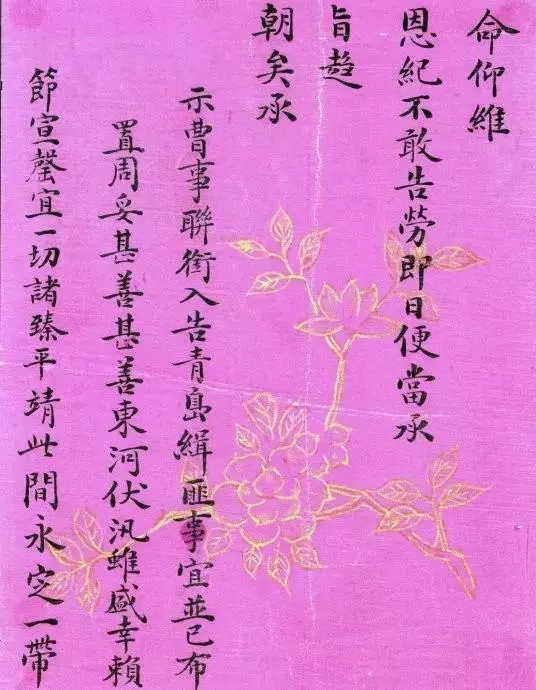 命仰維
恩紀不敢告勞即日便當承
旨趨
朝矣承
示曹事聯銜入告青島緝匪事宜並已布
置周妥甚善甚善東河伏汛雖盛幸賴
節宣罄宜一切諸臻平靖此間永定一帶